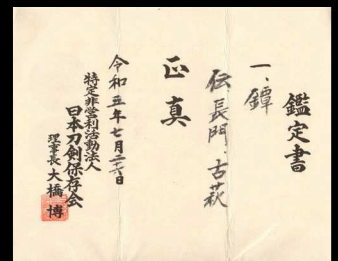 鑑定書
一、鐔
伝長門古萩
正真
令和五年七月二十六日
特定非営利活動法人
日本刀剣保存会
理事長 大橋博